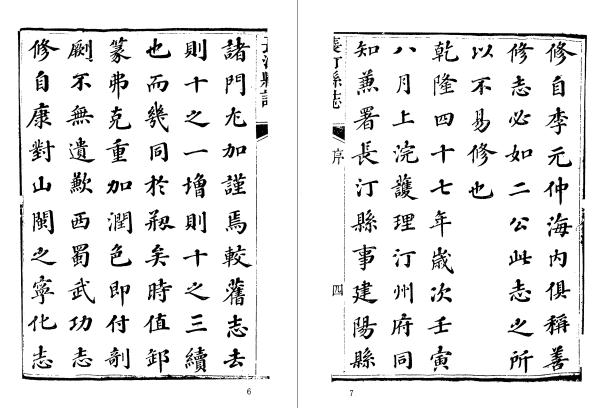 諸門尤加謹焉較舊志去
則十之一增則十之三續
也而幾同於剏矣時值卸
篆弗克重加潤色即付剞
劂不無遺歉西蜀武功志
修自康對山閩之寧化志
6
修自李元仲海内俱稱善
修志必如二公此志之所
以不易修也
乾隆四十七年歲次壬寅
八月上浣護理汀州府同
知兼署長汀縣事建陽縣
長汀縣志 序 四
7